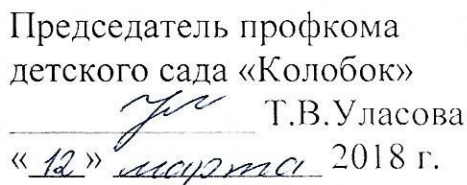 Председатель профкома
детского сада «Колобок»
Т.В.Уласова
«12» марта 2018 г.